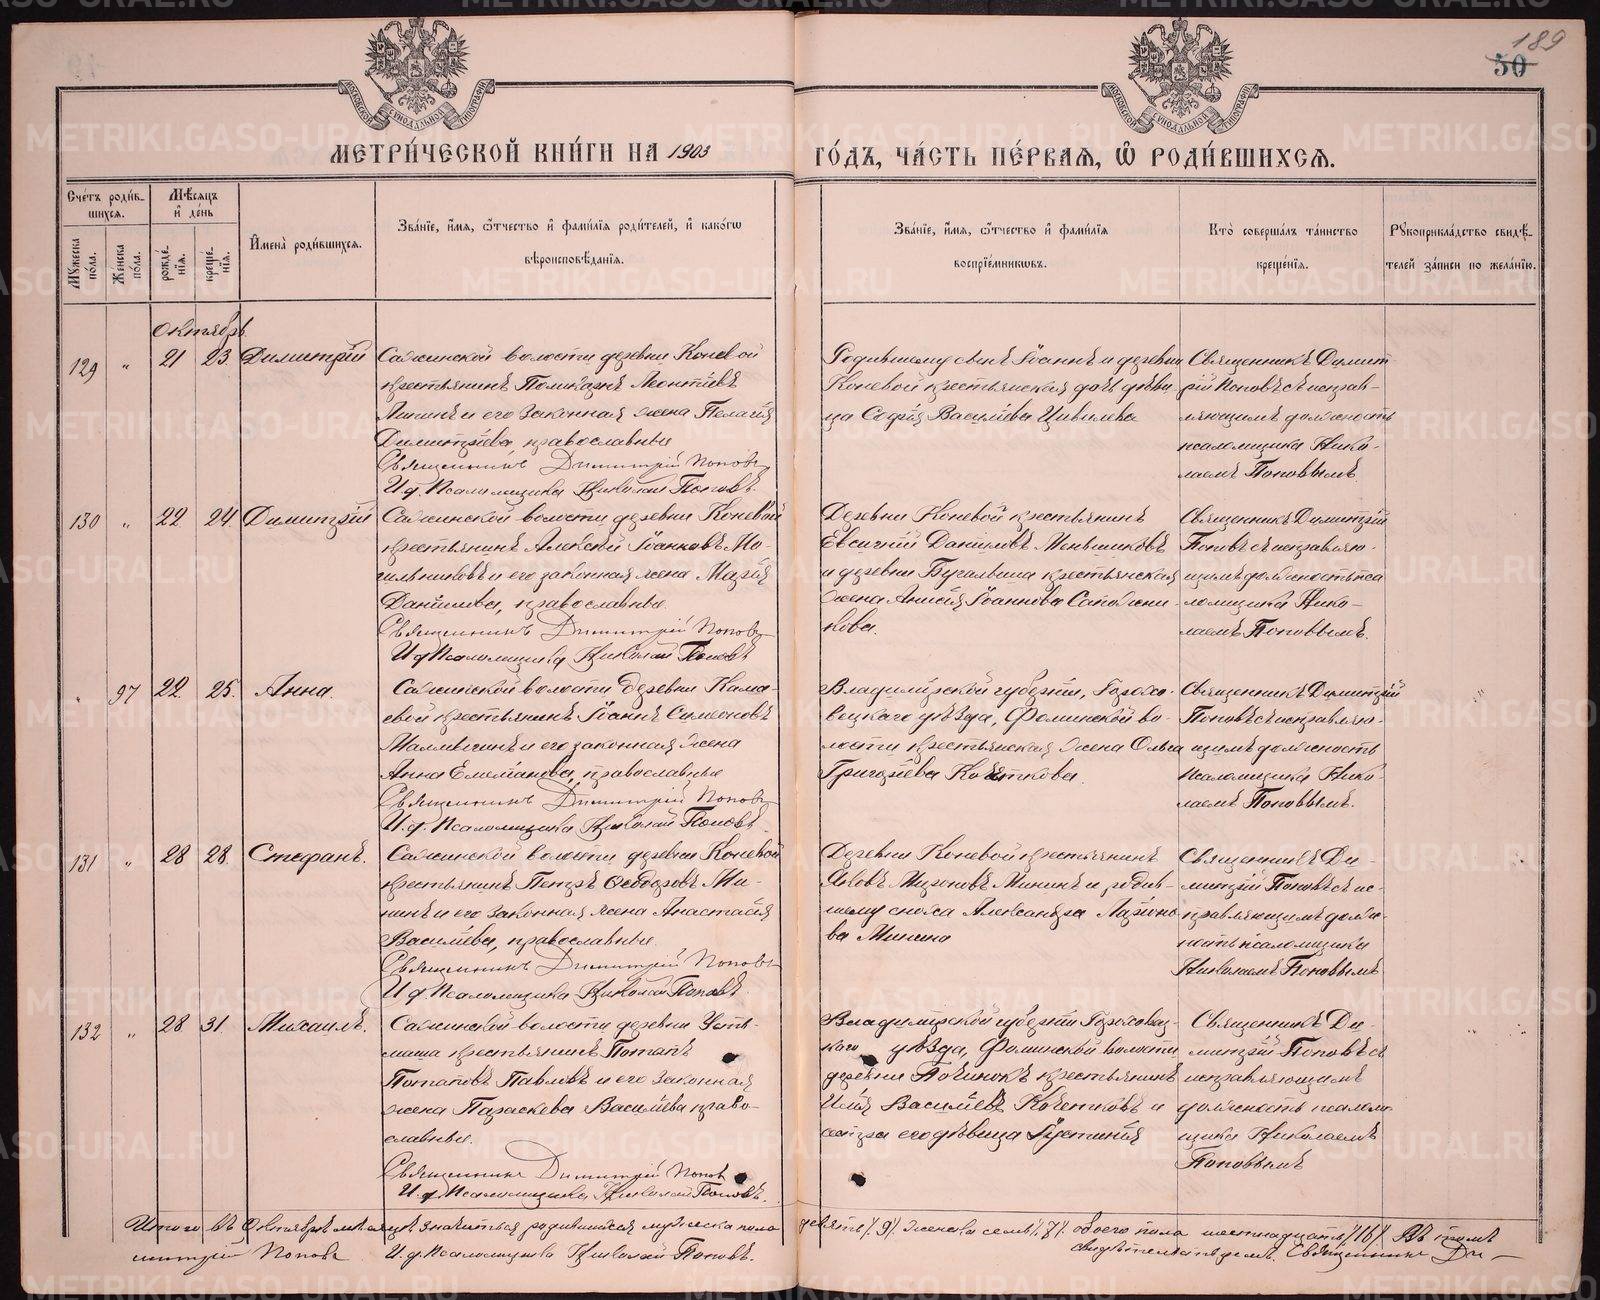 189
50
МЕТРИ́ЧЕСКОЙ КНИ́ГИ НА 1903
ГО́ДЪ, ЧА́СТЬ ПЕ́РВАЯ, Ѽ РОДИ́ВШИХСЯ.
Сче́тъ роди́вшихся.
Му́жеска по́ла.
Же́нска по́ла.
Мѣ́сяцъ и҆ де́нь
рожде́нїя.
креще́нїя.
И҆мена̀ роди́вшихся.
Зва́нїе, и҆́мя, ѻ҆́тчество и҆ фами́лїя роди́телей, и҆ како́гѡ
вѣроисповѣ́данїя.
Зва́нїе, и҆́мя, ѻ҆́тчество и҆ фами́лїя
воспрїе́мникѡвъ.
Кто̀ соверша́лъ та́инство
креще́нїя.
Рꙋкоприкла́дство свидѣ́телей за́писи по жела́нїю.
Октябрь
129 " 21 23 Димитрій
Сажинской волости деревни Коневой
крестьянинъ Поликарпъ Леонтіевъ
и его законная жена Пелагія
Димитріева, православные
Священникъ Димитрій Поповъ
И.д. Псаломщика Николай Поповъ
Родившему сынъ Іоаннъ и деревни
Коневой крестьянская дочь дѣви-
ца Софія Васильева
Священникъ Димит
рій Поповъ съ исправ-
ляющимъ должность
псаломщика Нико-
лаемъ Поповымъ
130 " 22 24 Димитрій
Сажинской волости деревни Коневой
крестьянинъ Алексій Іоанновъ Мо-
гильниковъ и его законная жена Марія
Даніилова, православные
Священникъ Димитрій Поповъ
И.д. Псаломщика Николай Поповъ
Деревни Коневой крестьянинъ
Евсигній Даніиловъ Меньшиковъ
и деревни крестьянская
жена Анисія Іоаннова Сапожни-
кова.
Священникъ Димитрій
Поповъ съ исправляю-
щимъ должность пса
ломщика Нико-
лаемъ Поповымъ.
" 97 22 25 Анна.
Сажинской волости деревни Кама-
евой крестьянинъ Іоаннъ Симеоновъ
и его законная жена
Анна православные
Священникъ Димитрій Поповъ
И.д. Псаломщика Николай Поповъ
Владимірской губерніи, Горохо-
вецкаго уѣзда, Фоминской во-
лости крестьянская жена Ольга
Григоріева Кочеткова.
Священникъ Димитрій
Поповъ съ исправляю-
щимъ должность
псаломщика Нико-
лаемъ Поповымъ.
131 " 28 28 Стефанъ.
Сажинской волости деревни Коневой
крестьянинъ Петръ Ѳеодоровъ Ми-
нинъ и его законная жена Анастасія
Васильева, православные
Священникъ Димитрій Поповъ
И.д. Псаломщика Николай Поповъ
Деревни Коневой крестьянинъ
Іаковъ Мироновъ Мининъ и родив-
шему сноха Александра Ларіоно
ва Минина
Священникъ Ди-
митрій Поповъ съ ис-
правляющимъ долж-
ность псаломщика
Николаемъ Поповымъ
132 " 28 31 Михаилъ.
Сажинской волости деревни Усть-
маша крестьянинъ Потапъ
Потаповъ Павловъ и его законная
жена Параскева Васильева право-
славные.
Священникъ Димитрій Поповъ
И.д. Псаломщика Николай Поповъ.
Владимірской губерніи Гороховец-
каго уѣзда, Фоминской волости
деревни Починокъ крестьянинъ
Илія Васильевъ Кочетковъ и
сестра его дѣвица Іустинія
Священникъ Ди-
митрій Поповъ съ
исправляющимъ
должность псалом-
щика Николаемъ
Поповымъ
Итого въ Октябрѣ мѣсяцѣ значиться родившихся мужеска пола девять /9/ женска семь /7/ обоего пола шестнадцать /16/ Въ томъ
свидѣтельствуемъ. Священникъ Ди-
митрій Поповъ И.д. Псаломщика Николай Поповъ.
METRIKI.GASO-URAL.RU